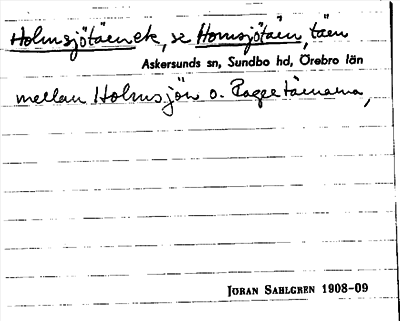 Holmsjötäen etc, se Homsjötäen, täen
Askersunds sn, Sundbo hd, Örebro län
mellan Holmsjön o. Pageetäenarna,
JORAN SAHLGREN 1908-09